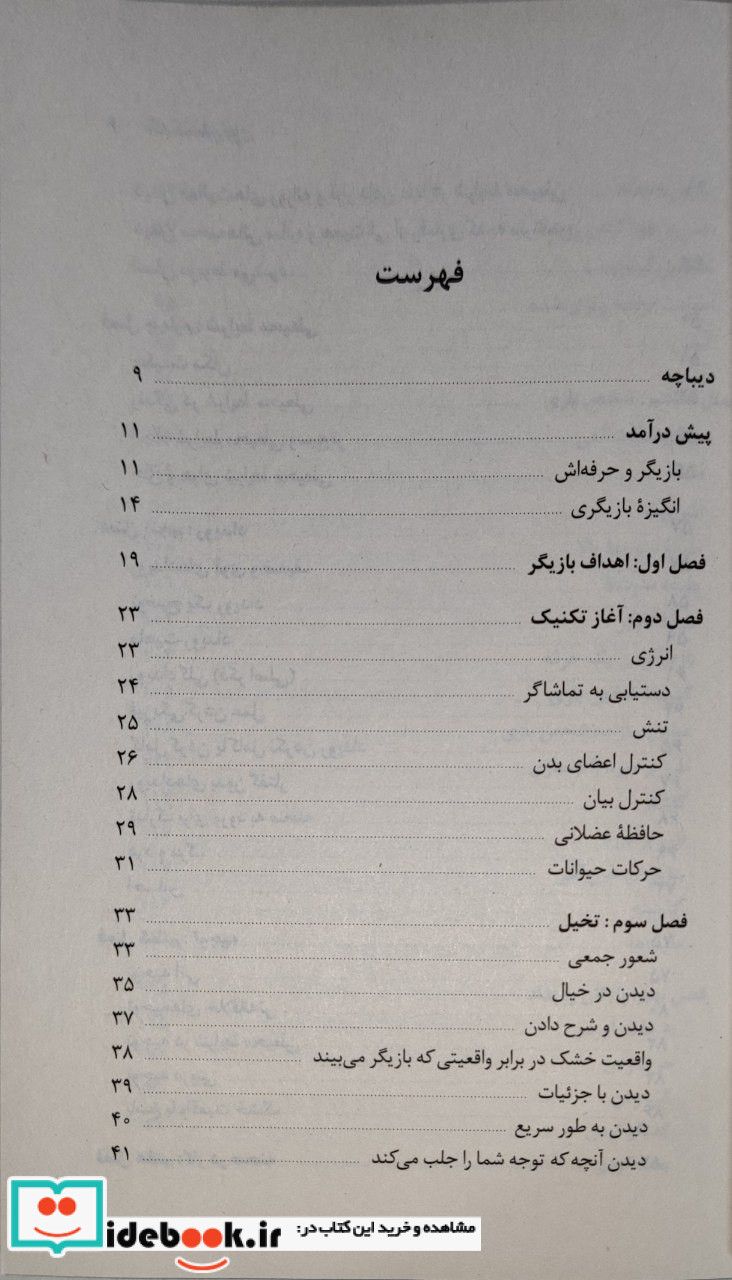 فهرست
دیباچه ۹
پیش درآمد ۱۱
بازیگر و حرفه‌اش ۱۱
انگیزهٔ بازیگری ۱۴
فصل اول: اهداف بازیگر ۱۹
فصل دوم: آغاز تکنیک ۲۳
انرژی ۲۳
دستیابی به تماشاگر ۲۴
تنش ۲۵
کنترل اعضای بدن ۲۶
کنترل بیان ۲۸
حافظهٔ عضلانی ۲۹
حرکات حیوانات ۳۱
فصل سوم : تخیل ۳۳
شعور جمعی ۳۳
دیدن در خیال ۳۵
دیدن و شرح دادن ۳۷
واقعیت خشک در برابر واقعیتی که بازیگر می‌بیند ۳۸
دیدن با جزئیات ۳۹
دیدن به طور سریع ۴۰
دیدن آنچه که توجه شما را جلب می‌کند ۴۱
مشاهده و خرید این کتاب در:
idebook.ir